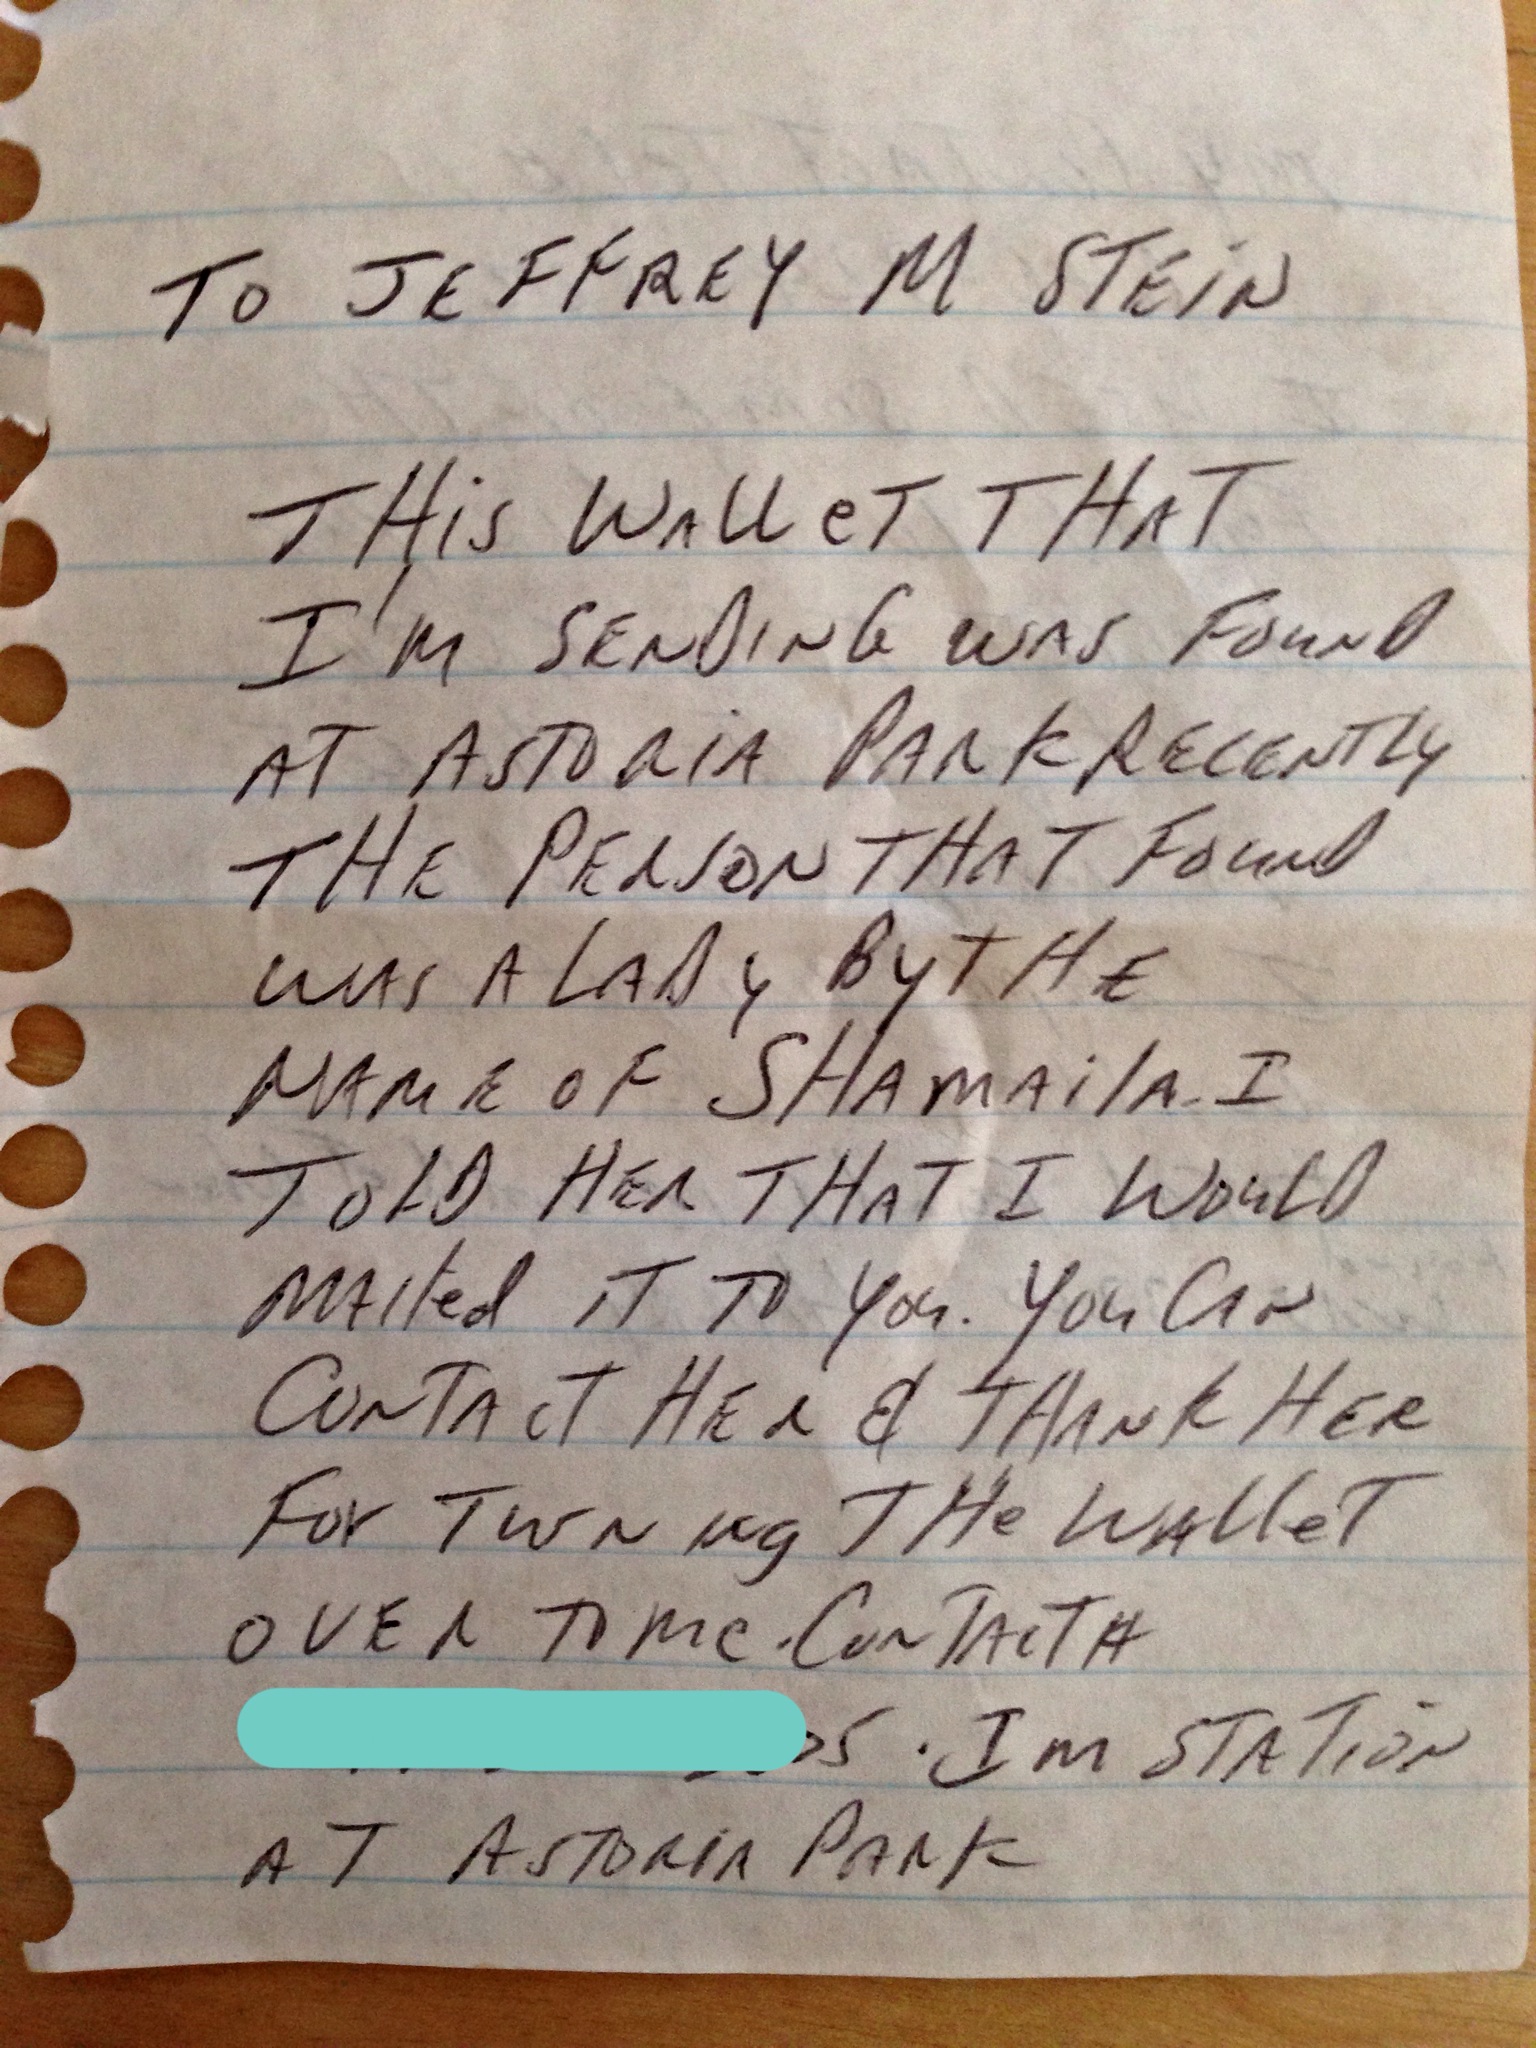 TO JEFFREY M STEIN
THIS WALLET THAT
I'M SENDING WAS FOUND
AT ASTORIA PARK RECENTLY
THE PERSON THAT FOUND
WAS A LADY BY THE
NAME OF SHAMAILA. I
TOLD HER THAT I WOULD
MAILED IT TO YOU. YOU CAN
CONTACT HER & THANK HER
FOR TURNING THE WALLET
OVER TO ME. CONTACT #
05. IM STATION
AT ASTORIA PARK